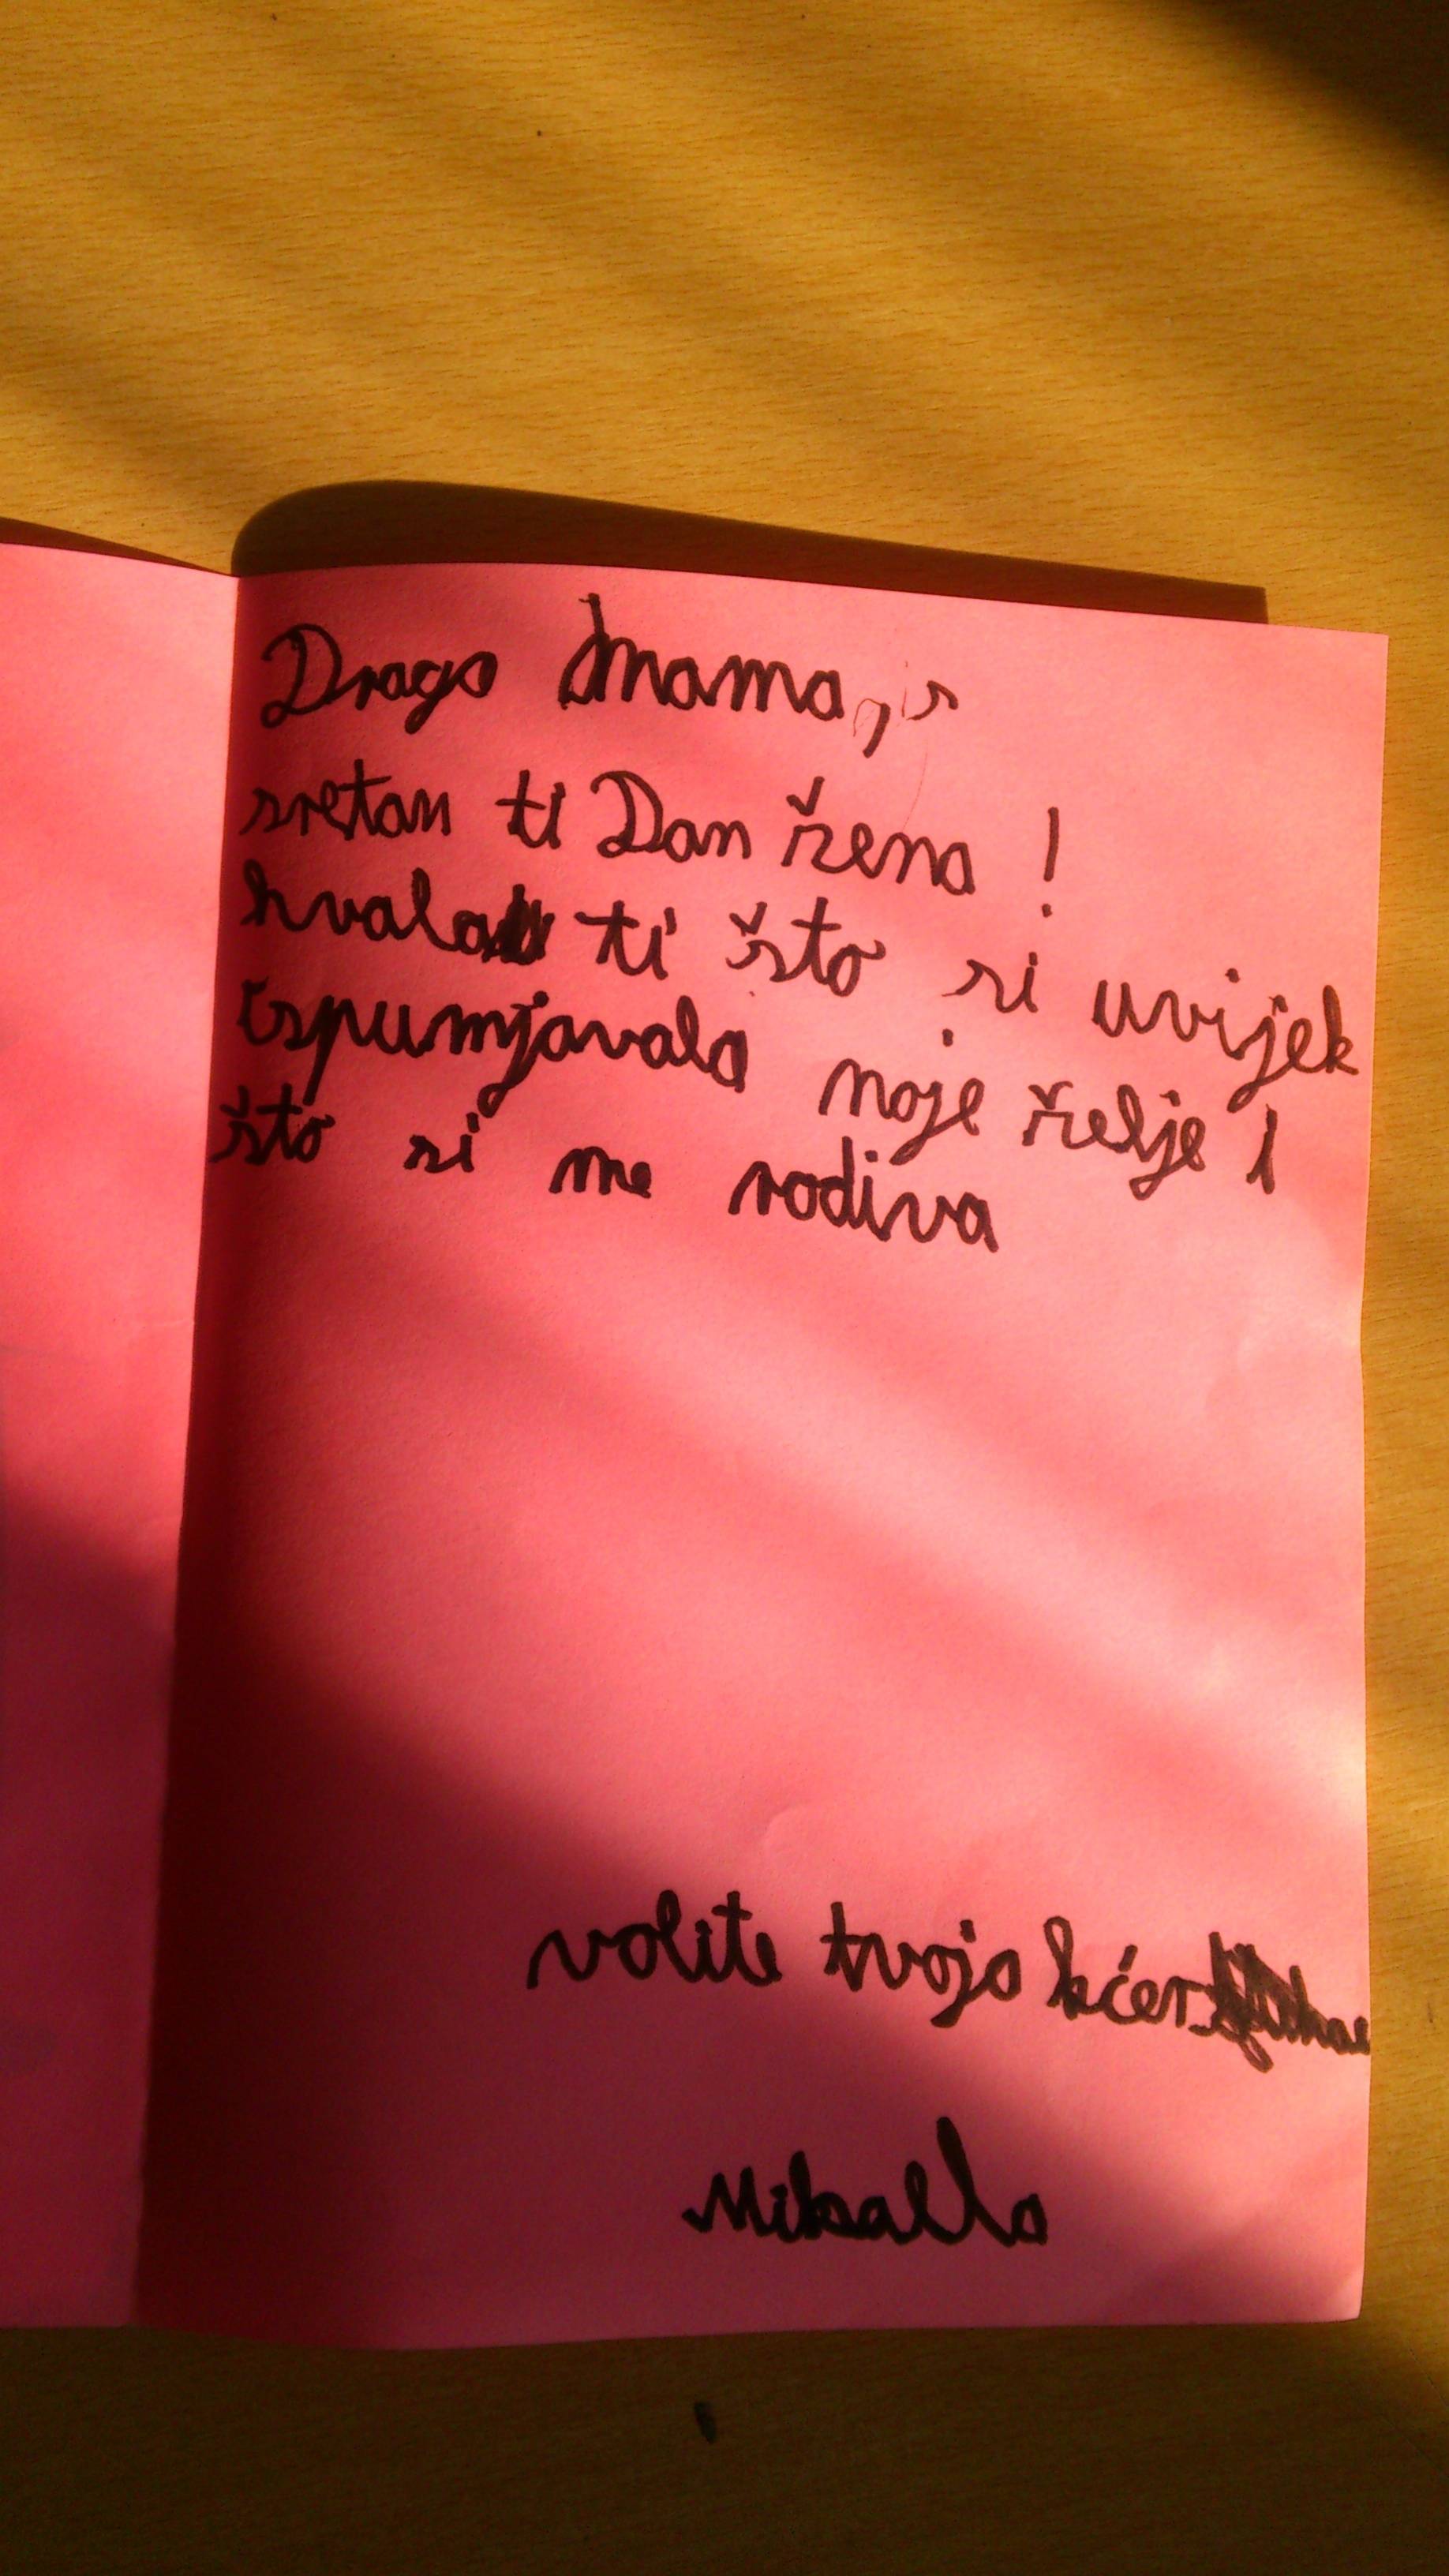 Draga mama,
sretan ti Dan žena !
hvala ti što si uvijek
ispumjavala moje želje i
što si me rodiva
volite tvoja kćer
Mikaella